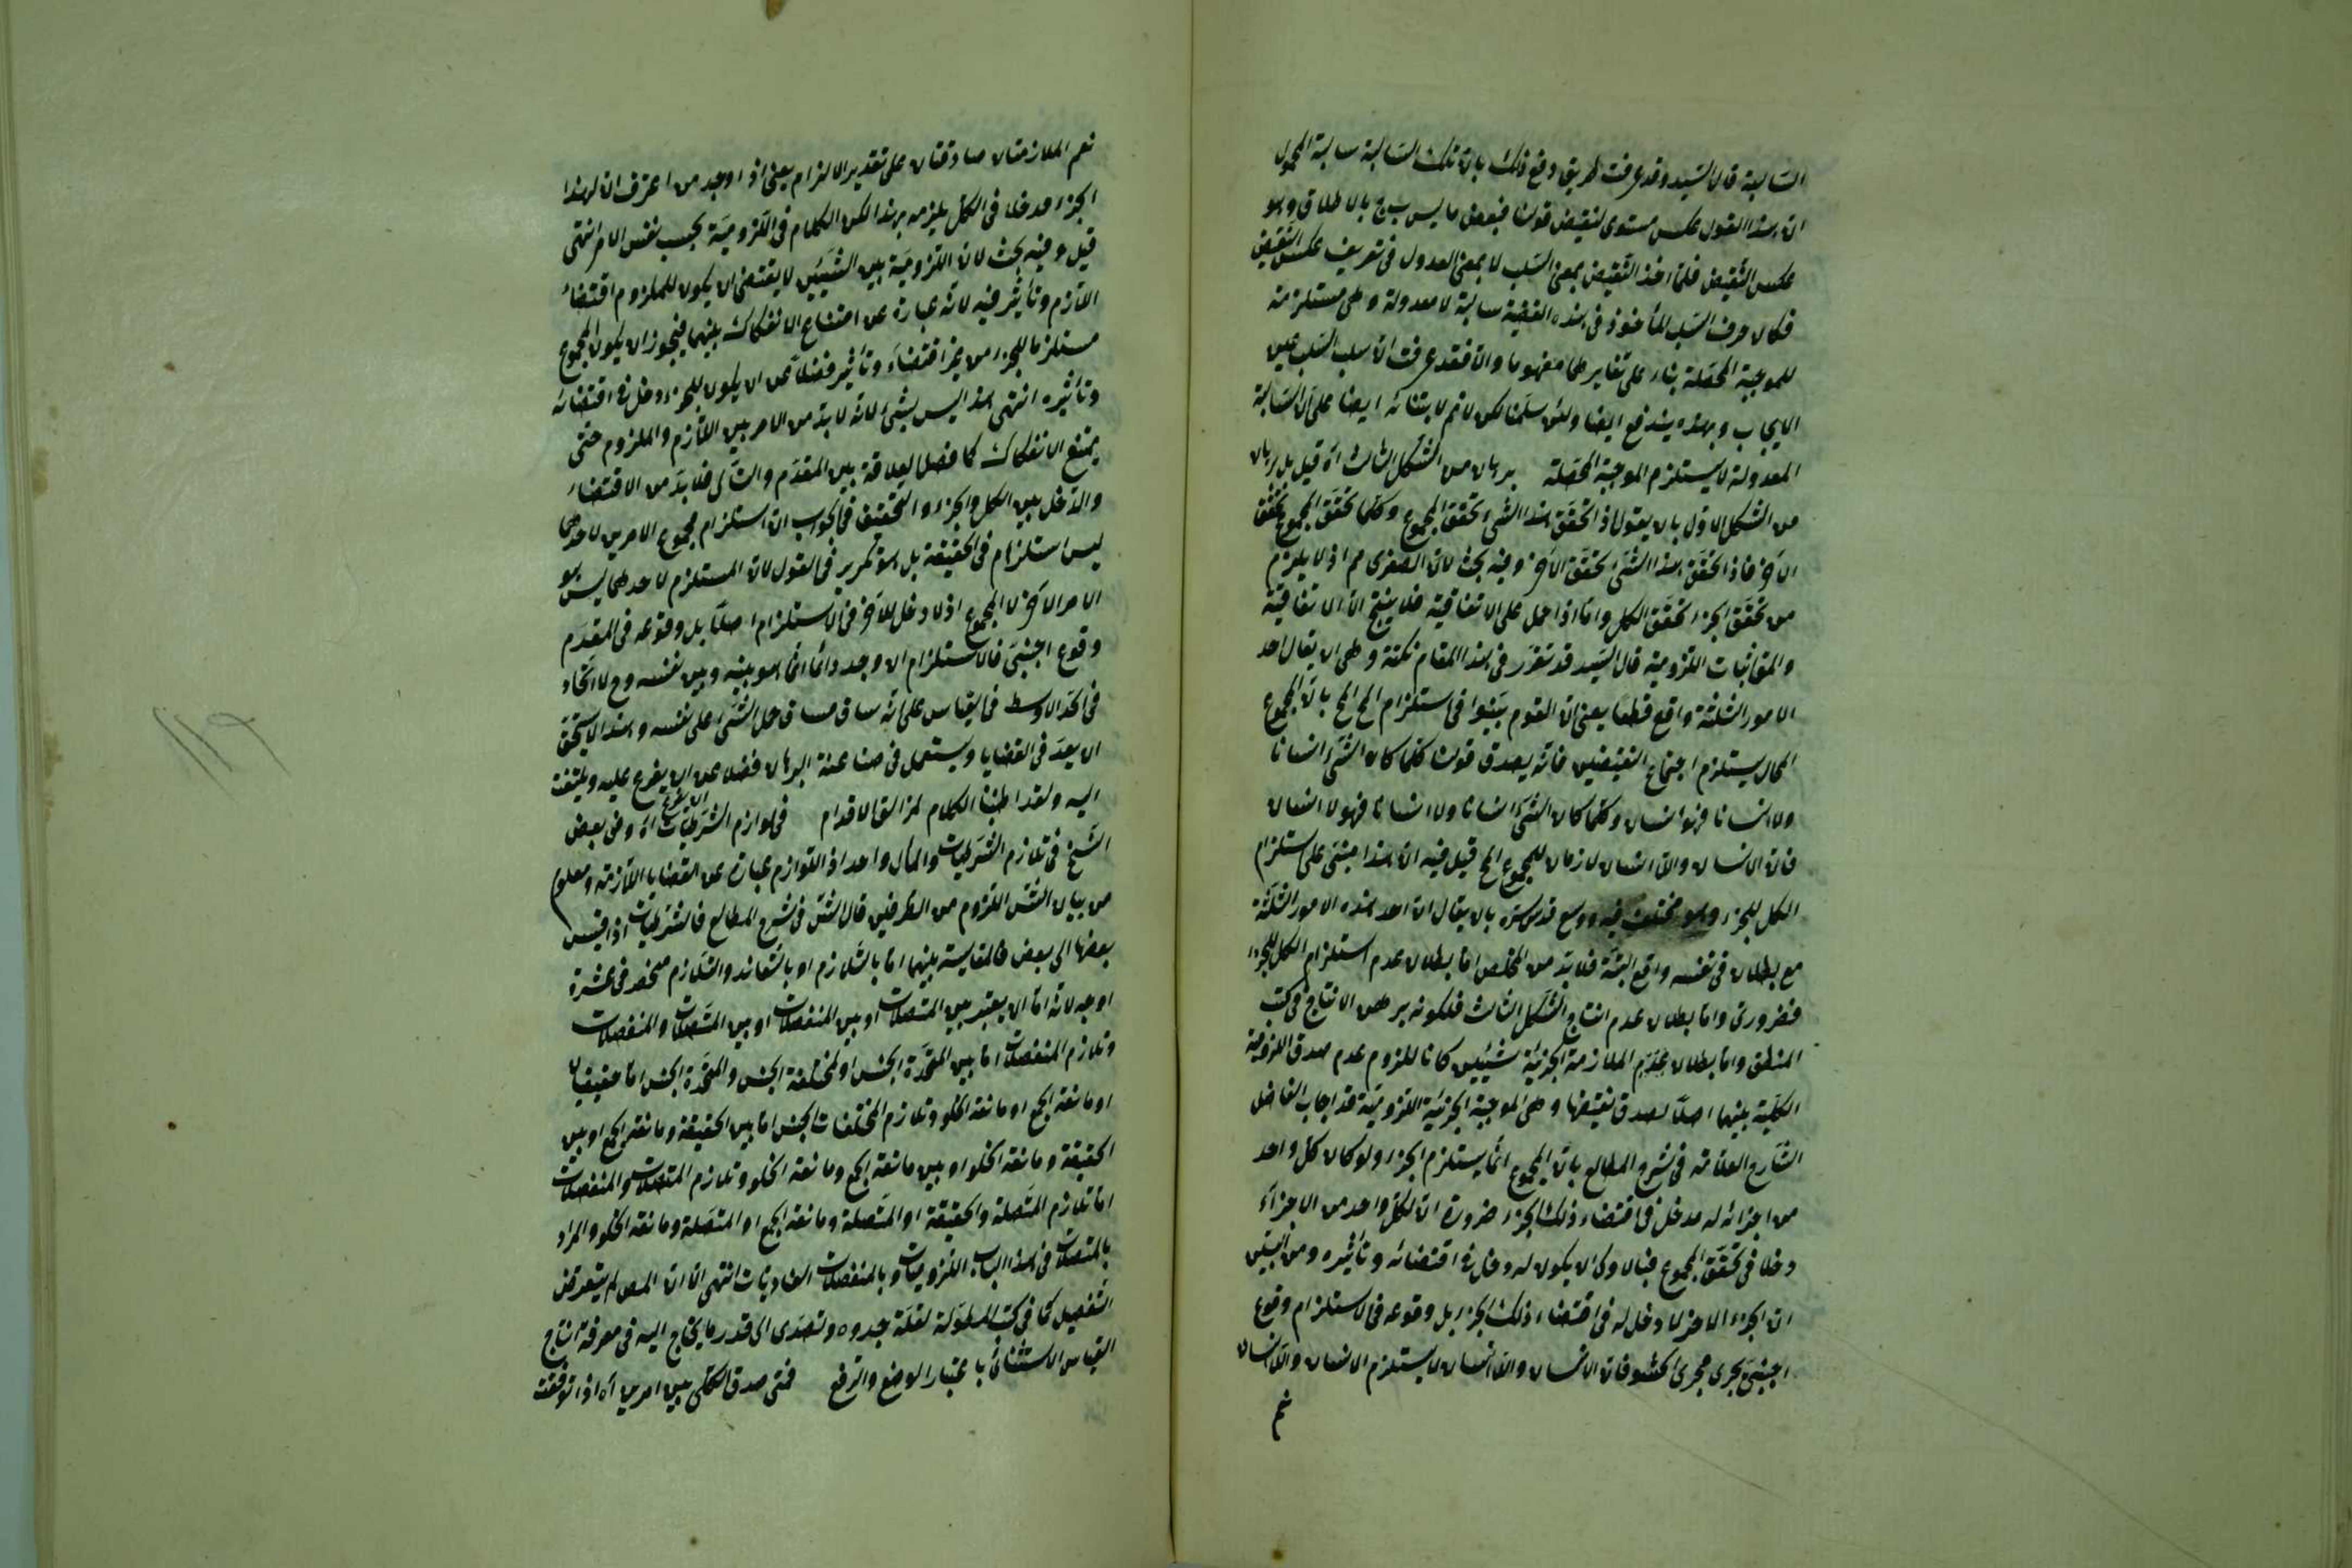 السالبة قال السيد وقد عرفت طريق دفع ذلك بان تلك السالبة سالبة المحمول
ان هذا القول عكس مستوى لنقيض قولنا فبعض ما ليس ب ج بالاطلاق وهو
عكس النقيض فلمّا اخذ النقيض بمعنى السلب لا بمعنى العدول فى تعريف عكس النقيض
فكان حرف السلب المأخوذ فى هذه القضية سالبة لا معدولة وهى مستلزمة
للموجبة المحصّلة بناء على تغايرهما مفهوما والا فقد عرفت ان سلب السلب عين
الايجاب وبهذه يندفع ايضا ولئن سلّمنا لكن لا نم لابتنائه ايضا على ان السالبة
المعدولة لا يستلزم الموجبة المحصّلة برهان من الشكل الثالث اه قيل بل برهان
من الشكل الاول بان يقول اذا تحقّق هذا الشىء تحقق المجموع وكلما تحقّق المجموع تحقّق
الآخر فاذا تحقّق هذا الشىء تحقّق الآخر وفيه بحث لان الصغرى مم اذ لا يلزم
من تحقّق الجزء تحقّق الكل وامّا اذا حمل على الاتفاقية فلا ينتج الا الاتفاقية
والمق اثبات اللزومية قال السيد قد تقرّر فى هذا المقام نكتة وهى ان يقال احد
الامور الثلثة واقع قطعا يعنى ان القوم بيّنوا فى استلزام المح المح بان المجموع
المحال يستلزم اجتماع النقيضين فانّه يصدق قولنا كلما كان الشىء انسانا
ولا انسانا فهو انسان وكلما كان الشىء انسانا ولا انسانا فهو لا انسان
فان الانسان واللا انسان لازمان للمجموع المح قيل فيه ان هذا مبنى على استلزام
الكل للجزء وهو مختلف فيه ووسع قدس سره بان يقال ان احد هذه الامور الثلثة
مع بطلان فى نفسه واقع البتة فلا بدّ من المخلص امّا بطلان عدم استلزام الكل للجزء
فضرورى وامّا بطلان عدم انتاج الشكل الثالث فلكونه برهن الانتاج فى كتب
المنطق وامّا بطلان عدم الملازمة الجزئية شيئين كانا للزوم عدم صدق اللزومية
الكلية بينهما اصلا لصدق نقيضها وهى الموجبة الجزئية اللزومية قد اجاب الفاضل
الشارح العلامة فى شرح المطالع بان المجموع انما يستلزم الجزء ولو كان كل واحد
من اجزائه له مدخل فى اقتضاء ذلك الجزء ضرورة ان لكل واحد من الاجزاء
دخلا فى تحقّق المجموع فبالاولى ان يكون له دخل فى اقتضائه وتأثيره ومن البيّن
ان الجزء الآخر لا دخل له فى اقتضاء ذلك الجزء بل وقوعه فى الاستلزام وقوع
اجنبى يجرى مجرى الحشو فان الانسان واللا انسان لا يستلزم الانسان واللا انسان
نعم
نعم الملازمتان صادقتان على تقدير الالزام يعنى اذا وجد من اعترف ان لهذا
الجزء مدخلا فى الكل يلزمه هذا لكن الكلام فى اللزومية بحسب نفس الامر انتهى
قيل وفيه بحث لان اللزومية بين الشيئين لا يقتضى ان يكون للملزوم اقتضاء
اللازم وتأثير فيه لانه عبارة عن امتناع الانفكاك بينهما فيجوز ان يكون المجموع
مستلزما للجزء من غير اقتضاء وتأثير فضلا عن ان يكون للجزء دخل فى اقتضائه
وتأثيره انتهى هذا ليس بشىء لانه لا بدّ من الامر بين اللازم والملزوم حتى
يمتنع الانفكاك كما فصل لعلاقة بين المقدّم والتالى فلا بدّ من الاقتضاء
والدخل بين الكل والجزء والتحقيق فى الجواب ان استلزام مجموع الامرين لاحدهما
ليس استلزام فى الحقيقة بل هو تكرير فى القول لان المستلزم لاحدهما ليس هو
الامر الآخر لا المجموع اذ لا دخل للآخر فى الاستلزام اصلا بل وقوعه فى المقدم
وقوع اجنبى فالاستلزام ان وجد دائما انما هو بينه وبين نفسه وح لا اتحاد
فى الحد الاوسط فى القياس على انه ساق مساق حمل الشىء على نفسه وهذا لا يستحق
ان يعدّ فى القضايا ويستعمل فى صناعة البرهان فضلا عن ان يفرع عليه ويلتفت
اليه ولقد اطنبنا الكلام لمزالق الاقدام فى لوازم الشرطيات اه وفى بعض
الشيخ فى تلازم الشرطيات والمآل واحد اذ اللوازم عبارة عن القضايا اللازمة ومعلوم
من بيان الش اللزوم من الطرفين قال الش فى شرح المطالع فالشرطيات اذا قيس
بعضها الى بعض فالمقايسة بينهما امّا بالتلازم او بالتعاند والتلازم منحصر فى عشرة
اوجه لانه امّا ان يعتبر بين المتصلات او بين المنفصلات او بين المتصلات والمنفصلات
وتلازم المنفصلات امّا بين المتحدة الجنس او المختلفة الجنس والمتحدة الجنس امّا حقيقيان
او مانعة الجمع او مانعة الخلو وتلازم المختلفات الجنس امّا بين الحقيقة ومانعة الجمع او بين
الحقيقة ومانعة الخلو او بين مانعة الجمع ومانعة الخلو وتلازم المتصلات والمنفصلات
امّا تلازم المتصلة والحقيقة او المتصلة ومانعة الجمع او المتصلة ومانعة الخلو والمراد
بالمتصلات فى هذا الباب اللزوميات وبالمنفصلات العناديات انتهى الا ان المص لم يتعرض
التفصيل كما فى كتب المطولة لقلة جدوه وتصدى الى قدر ما يحتاج اليه فى معرفة انتاج
القياس الاستثنائى باعتبار الوضع والرفع فمتى صدق الكلى بين امرين اه اذا توافقت
١١٩